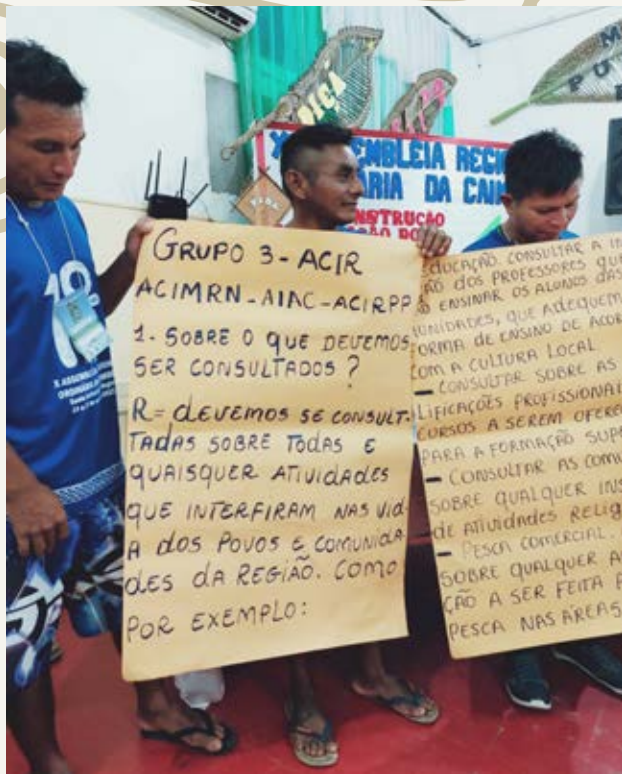 IÇÁ
EMBLÉIA REGI
ÁRIA DA CAIM
NSTRUÇÃO
GRUPO 3 - ACIR
ACIMRN-AIAC-ACIRPP
1. SOBRE O QUE DEVEMOS
SER CONSULTADOS?
R= DEVEMOS SE CONSULT-
TADAS SOBRE TODAS E
QUAISQUER ATIVIDADES
QUE INTERFIRAM NAS VID-
A DOS POVOS E COMUNIDA-
DES DA REGIÃO. COMO
POR EXEMPLO:
EDUCAÇÃO. CONSULTAR A IN
ÃO DOS PROFESSORES QUE
ENSINAR OS ALUNOS DAS
UNIDADES, QUE ADEQUEM
FORMA DE ENSINO DE ACOR
COM A CULTURA LOCAL
— CONSULTAR SOBRE AS
LIFICAÇÕES PROFISSIONAI
CURSOS A SEREM OFERE
PARA A FORMAÇÃO SUPE
— CONSULTAR AS COMU
SOBRE QUALQUER INS
DE ATIVIDADES RELIG
— PESCA COMERCIAL.
SOBRE QUALQUER A
ÇÃO A SER FEITA P
PESCA NAS ÁREAS